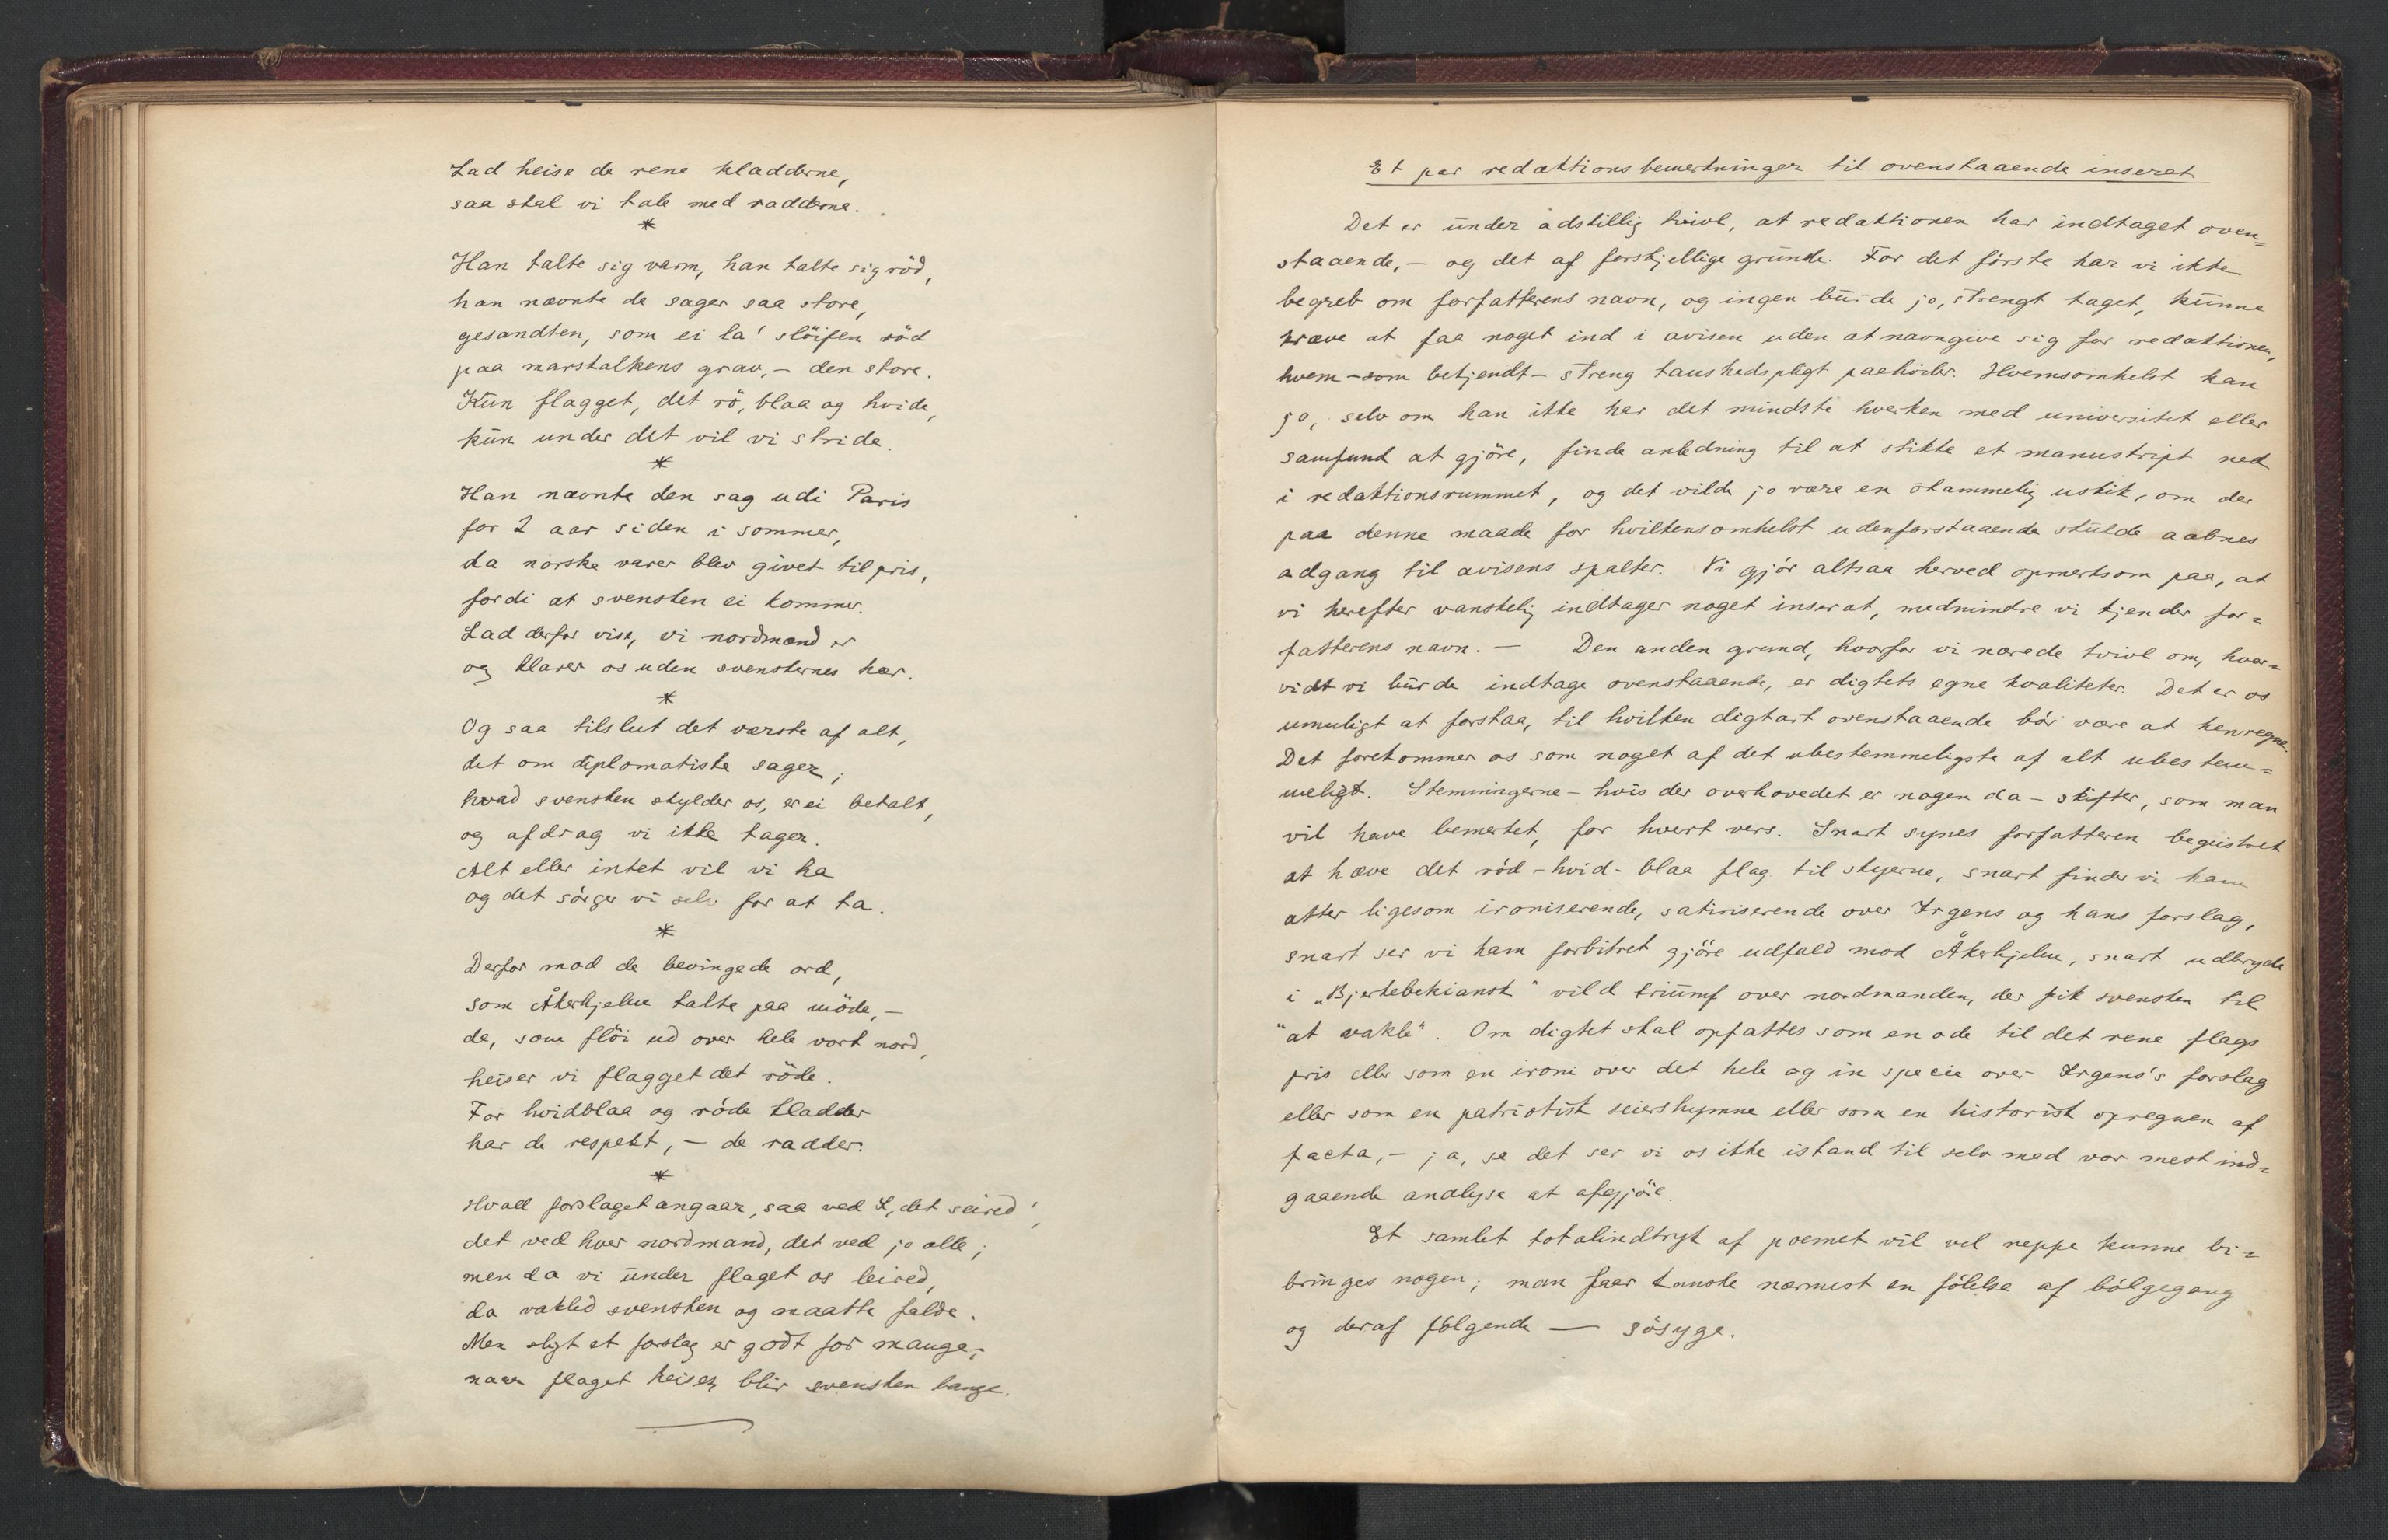 Lad heise de rene kladderne,
saa skal vi tale med radderne.
*
Han talte sig varm, han talte sig röd,
han nævnte de sager saa store,
gesandten, som ei la' slöifen röd
paa marskalkens grav, – den store.
Kun flagget, det rö, blaa og hvide,
kun under det vil vi stride.
*
Han nævnte den sag udi Paris
for 2 aar siden i sommer,
da norske varer blev givet tilpris,
fordi at svensken ei kommer.
Lad derfor vise, vi nordmænd er
og klarer os uden svenskernes hær.
*
Og saa tilslut det værste af alt,
det om diplomatiske sager;
hvad svensken skylder os, er ei betalt,
og afdrag vi ikke tager.
Alt eller intet vil vi ha
og det sörger vi selv for at ta.
*
Derfor mod de bevingede ord,
som Åkerhjelm talte paa möde, –
de, som flöi ud over hele vort nord,
heiser vi flagget det röde.
For hvidblaa og röde kladder
har de respekt, – de radder.
*
Hvad forslaget angaar, saa ved I, det seired',
det ved hver nordmand, det ved jo alle;
men da vi under flaget os leired,
da vakled svensken og maatte falde.
Men sligt et forslag er godt for mange;
naar flaget heises, blir svensken bange.
Et par redaktionsbemerkninger til ovenstaaende inserat
Det er under adskillig tvivl, at redaktionen har indtaget oven=
staaende, – og det af forskjellige grunde. For det förste har vi ikke
begreb om forfatterens navn, og ingen burde jo, strengt taget, kunne
kræve at faa noget ind i avisen uden at navngive sig for redaktionen,
hvem – som bekjendt – streng taushedspligt paahviler. Hvemsomhelst kan
jo, selv om han ikke har det mindste hverken med universitet eller
samfund at gjöre, finde anledning til at stikke et manuskript ned
i redaktionsrummet, og det vilde jo være en ustik, om der
paa denne maade for hvilkensomhelst udenforstaaende skulde aabnes
adgang til avisens spalter. Vi gjör altsaa herved opmerksom paa, at
vi herefter vanskelig indtager noget inserat, medmindre vi kjender for=
fatterens navn. – Den anden grund, hvorfor vi nærede tvivl om, hvor=
vidt vi burde indtage ovenstaaende, er digtets egne kvaliteter. Det er os
umuligt at forstaa, til hvilken digtart ovenstaaende bör være at henregne.
Det forekommer os som noget af det ubestemmeligste af alt ubestem=
meligt. Stemningerne – hvis der overhovedet er nogen da – skifter, som man
vil have bemerket, for hvert vers. Snart synes forfatteren begeistret
at hæve det röd-hvid-blaa flag til skyerne, snart finder vi ham
atter ligesom ironiserende, satiriserende over Irgens og hans forslag,
snart ser vi ham forbitret gjöre udfald mod Åkerhjelm, snart udbryde
i „Bjerkebekiansk“ vild triumf over nordmanden, der fik svensken til
"at vakle". Om digtet skal opfattes som en ode til det rene flags
pris eller som en ironi over det hele og in specie over Irgens's forslag
eller som en patriotisk seiershymne eller som en historisk opregnen af
facta, – ja, se det ser vi os ikke istand til selv med vor mest ind=
gaaende analyse at afgjöre.
Et samlet totalindtryk af poemet vil vel neppe kunne bi=
bringes nogen; man faar kanske nærmest en fölelse af bölgegang
og deraf fölgende — sösyge.